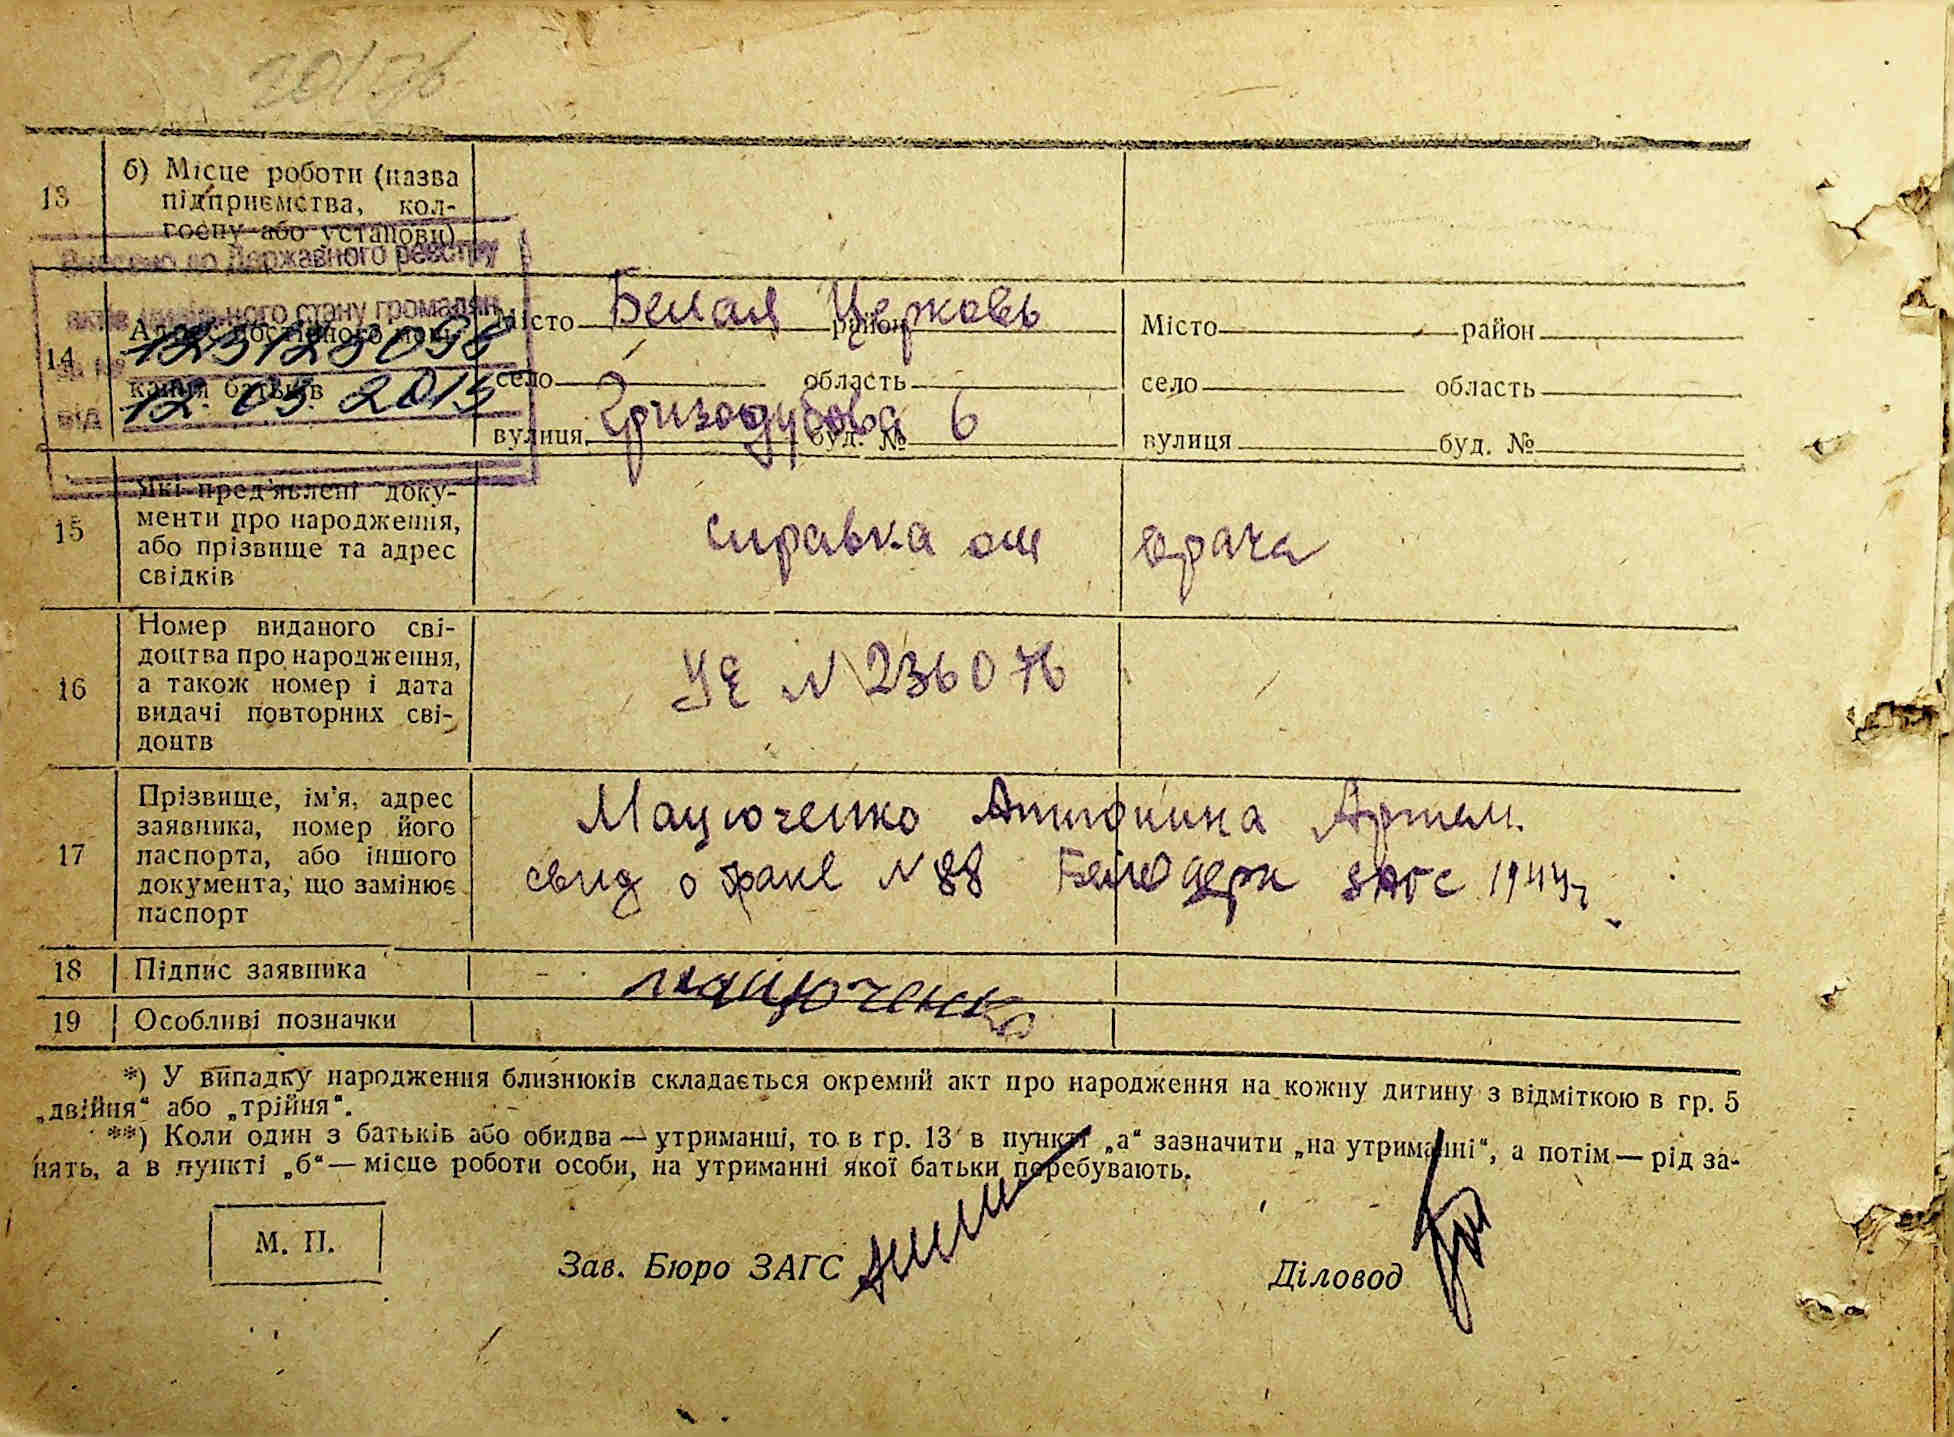 13
б) Місце роботи (назва
підприємства, кол-
госпу або установи)
Внесено до Державного реєстру
актів цивільного стану громадян
за №
123123098
від 12.03.2015
14
Адрес постійного меш-
кання батьків
Місто Белая Церковь район
село область
вулиця Гризодубова буд. № 6
Місто район
село область
вулиця буд. №
15
Які пред'явлені доку-
менти про народження,
або прізвище та адрес
свідків
справка от врача
16
Номер виданого сві-
доцтва про народження,
а також номер і дата
видачі повторних сві-
доцтв
N 236076
17
Прізвище, ім'я, адрес
заявника, номер його
паспорта, або іншого
документа, що замінює
паспорт
Мацюченко Антонина Артем.
свид о браке N 88 Белоцерк ЗАГС 1944г.
18
Підпис заявника
Мацюченко
19
Особливі позначки
*) У випадку народження близнюків складається окремий акт про народження на кожну дитину з відміткою в гр. 5
„двійня“ або „трійня“.
**) Коли один з батьків або обидва — утриманці, то в гр. 13 в пункті „а“ зазначити „на утриманні“, а потім — рід за-
нять, а в пункті „б“ — місце роботи особи, на утриманні якої батьки перебувають.
М. П.
Зав. Бюро ЗАГС
Діловод